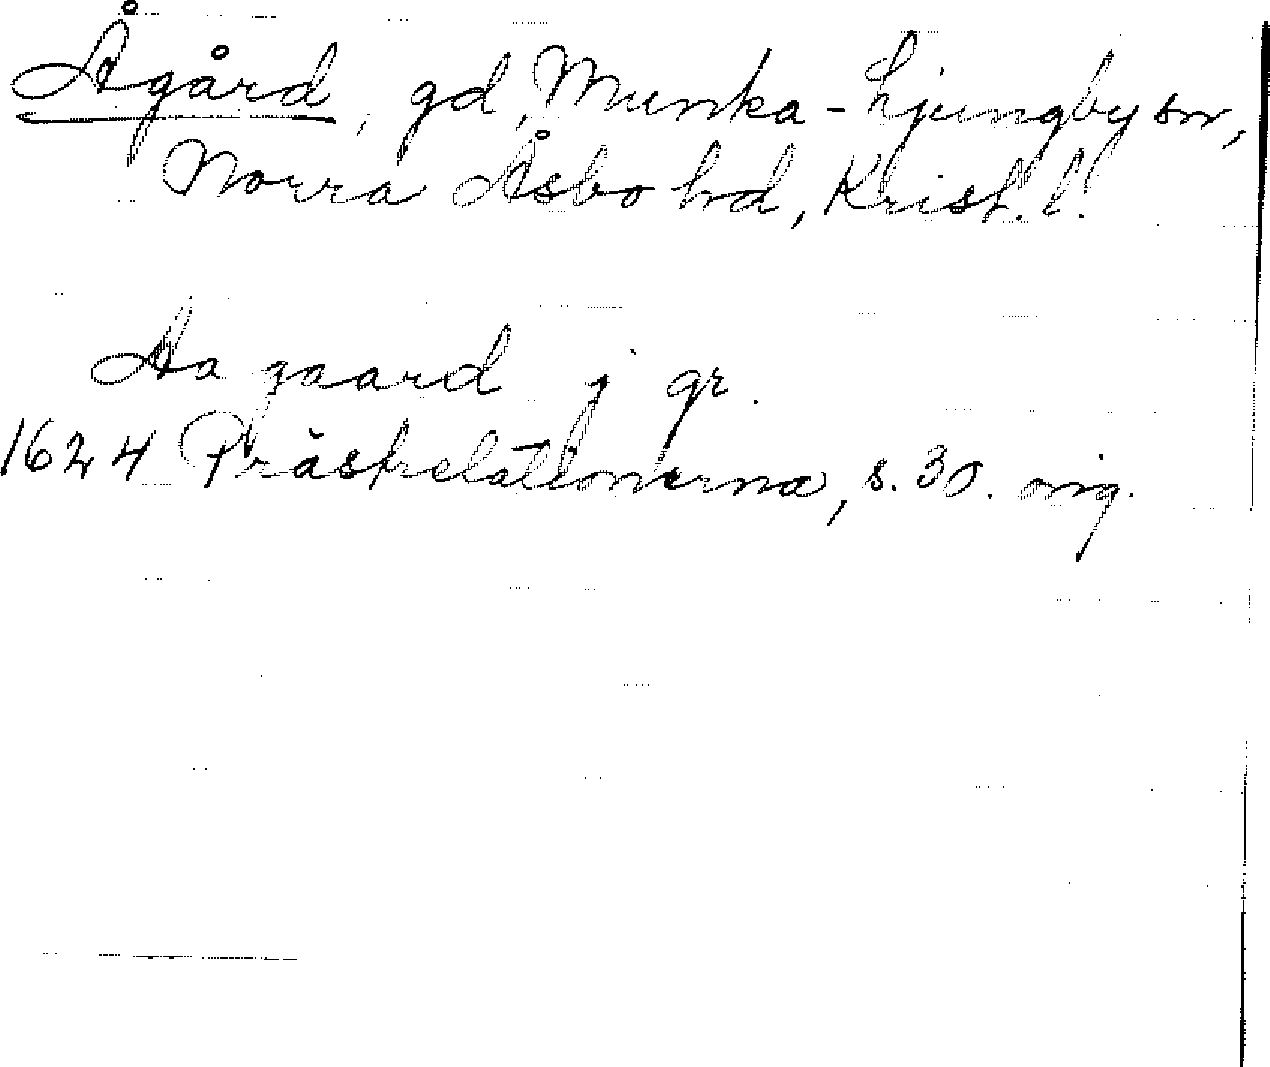 Ågård, gd, Munka-Ljungby sn,
Norra Åsbo hd, Krist. l.
Aa gaard j gr.
1624 Prästrelationerna, s. 30. orig.